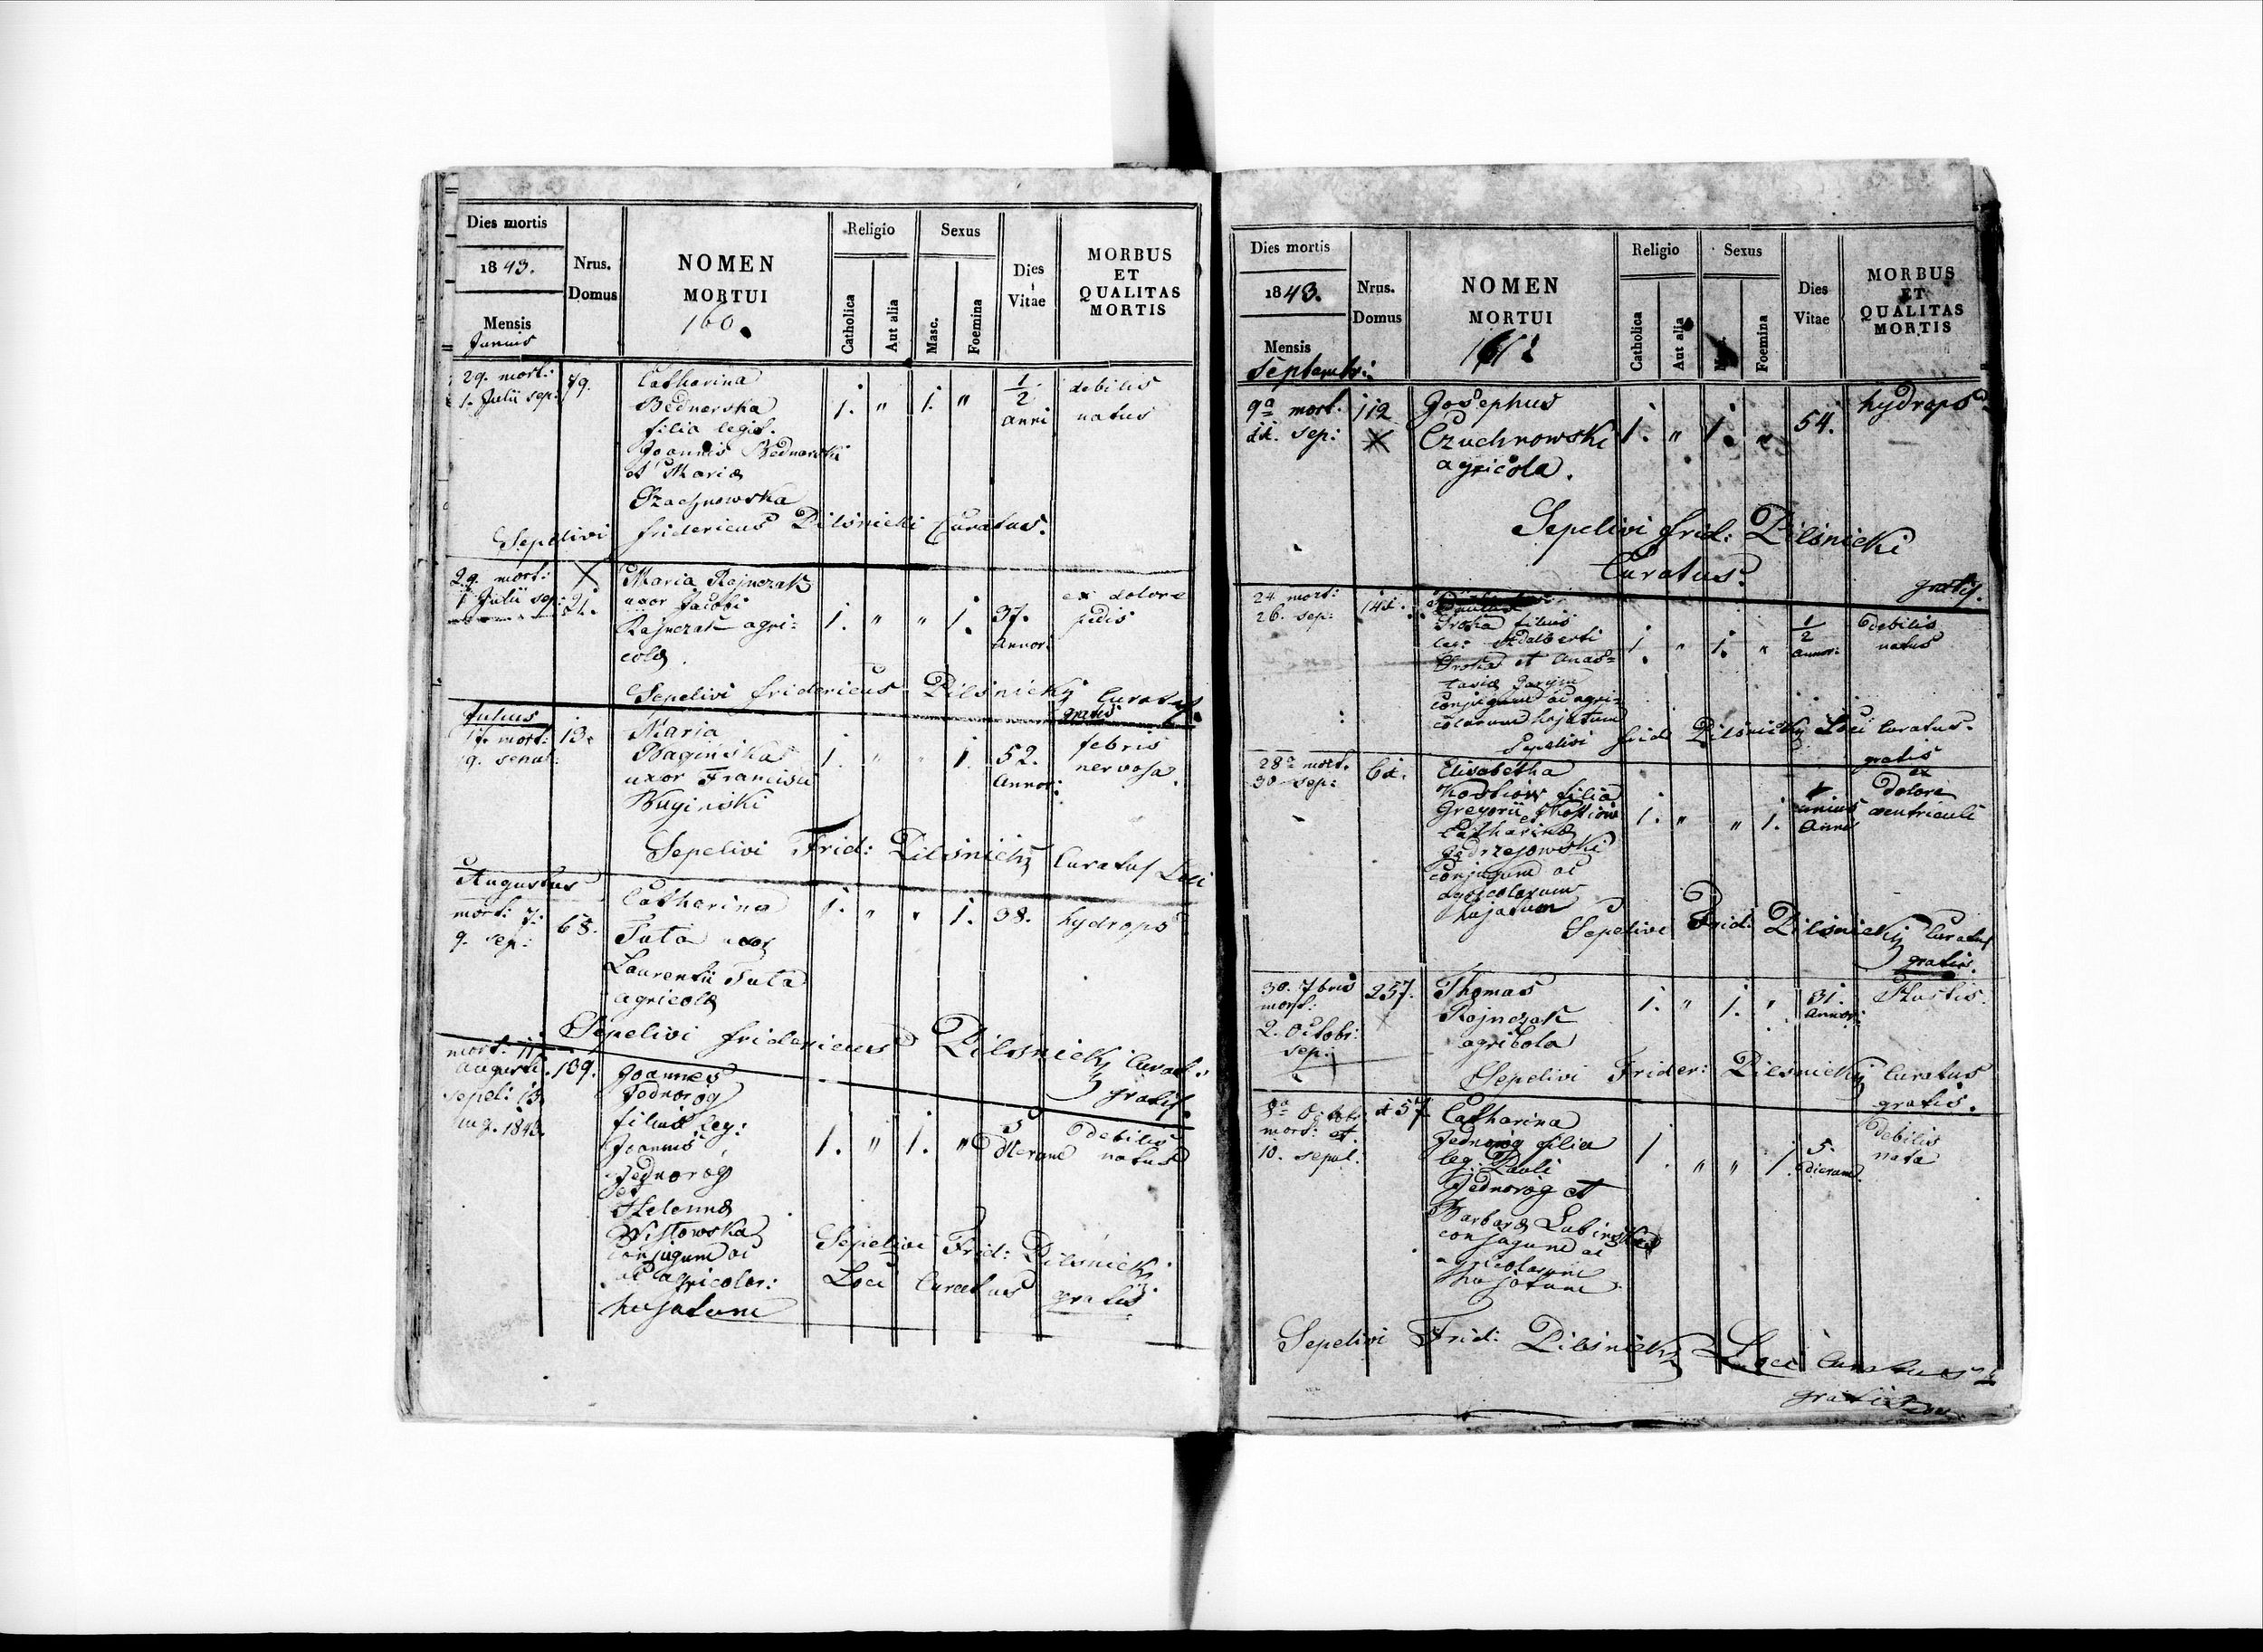 Dies mortis
1843.
Mensis
Junius
Nrus.
Domus
NOMEN
MORTUI
160.
Religio
Catholica
Aut alia
Sexus
Masc.
Foemina
Dies
Vitae
MORBUS
ET
QUALITAS
MORTIS
29. mort:
1. Julii sep:
79.
Catharina
Bednarska
filia legit.
Joannis Bednarski
et Maria
1. " 1. "
1/2
anni
debilis
natus
Sepelivi fridericus Pilsnicki Curatus.
29. mort:
1 Julii sep:
21.
Maria Rajnczak
uxor Jacobi
Rajnczak agri:
cola.
1. " " 1.
37.
Annor:
ex dolore
pedis
Sepelivi fridericus Pilsnicky Curatus.
gratis
Julius
17. mort:
13.
Maria
Baginska
uxor Francisci
Baginski
1. " " 1.
52.
Annor:
febris
nervosa.
Sepelivi Frid: Pilsnicky Curatus Loci
Augustus
mort: 7.
9. sep:
68.
Catharina
Tuta uxor
Laurentii Tuta
agricola
1. " " 1. 38.
hydrops
Sepelivi fridericus Pilsnicky Curat:
gratis.
mort: 11
Augusti.
sepel: 13.
Aug. 1843.
139.
Joannes
Jednorog
filius leg:
Joannis
Jednorog
et
Helenna
Wistowska
conjugum ac
agricolar:
hujatum
1. " 1. "
5
dierum
debilis
natus
Sepelivi Frid: Pilsnicky
Loci Curatus gratis
Dies mortis
1843.
Mensis
Septembr:
Nrus.
Domus
NOMEN
MORTUI
Religio
Catholica
Aut alia
Sexus
Foemina
Dies
Vitae
MORBUS
ET
QUALITAS
MORTIS
9a mort.
11. sep:
112
Josephus
Czuchnowski
agricola.
1. " 1. "
54.
hydrops
Sepelivi frid: Pilsnicki
Curatus.
gratis.
24 mort:
26. sep:
141.
Sroka filius
leg: Adalberti
Sroka et Anas=
tasia
conjugum ac agri=
colarum hujatum
1. " 1. "
1/2
annor:
debilis
natus
Sepelivi frid Pilsnicky Loci Curatus.
gratis
28a mort.
30 sep:
61.
Elisabetha
Kostiow filia
Gregorii Kostiow
et
Catharina
Jędrzejowski
conjugum ac
agricolarum
hujatum
1. " " 1.
1
unius
Anni
ex
dolore
ventriculi
Sepelivi Frid: Pilsnicky Curatus
gratis.
30. 7bris
mort:
2. Octobr:
sep:
257.
Thomas
Rajnczak
agricola
1. " 1. "
31.
Annor:
Sepelivi Frider: Pilsnicky Curatus
gratis.
mort: et
10. sepul.
157
Catharina
Jednorog filia
leg. Pauli
Jednorog et
Barbara Lubinska
conjugum ac
agricolarum
hujatum
1. " " 1.
5.
dierum.
debilis
nata
Sepelivi Frid: Pilsnicky Loci Curatus
gratis